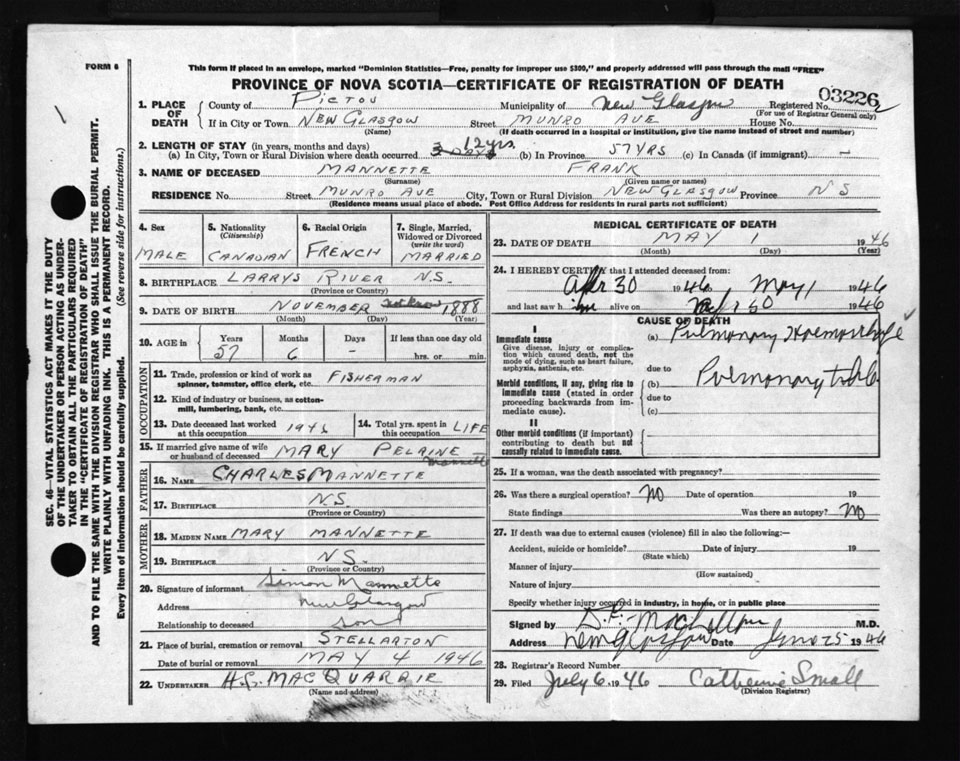 FORM 6
This form if placed in an envelope, marked "Dominion Statistics—Free, penalty for improper use $300," and properly addressed will pass through the mail "FREE"
PROVINCE OF NOVA SCOTIA—CERTIFICATE OF REGISTRATION OF DEATH
SEC. 46—VITAL STATISTICS ACT MAKES IT THE DUTY
OF THE UNDERTAKER OR PERSON ACTING AS UNDER-
TAKER TO OBTAIN ALL THE PARTICULARS REQUIRED
IN THE "CERTIFICATE OF REGISTRATION OF DEATH"
AND TO FILE THE SAME WITH THE DIVISION REGISTRAR WHO SHALL ISSUE THE BURIAL PERMIT.
WRITE PLAINLY WITH UNFADING INK. THIS IS A PERMANENT RECORD.
Every item of information should be carefully supplied. (See reverse side for instructions.)
1. PLACE OF DEATH County of PICTOU Municipality of New Glasgow Registered No. 03226
(For use of Registrar General only)
If in City or Town NEW GLASGOW Street MUNRO AVE House No.
(Name) (If death occurred in a hospital or institution, give the name instead of street and number)
2. LENGTH OF STAY (in years, months and days)
(a) In City, Town or Rural Division where death occurred 3 DAYS 12 yrs. (b) In Province 57 YRS (c) In Canada (if immigrant) —
3. NAME OF DECEASED MANNETTE FRANK
(Surname) (Given name or names)
RESIDENCE No. Street MUNRO AVE City, Town or Rural Division NEW GLASGOW Province N S
(Residence means usual place of abode. Post Office Address for residents in rural parts not sufficient)
4. Sex MALE
5. Nationality (Citizenship) CANADIAN
6. Racial Origin FRENCH
7. Single, Married, Widowed or Divorced (write the word) MARRIED
8. BIRTHPLACE LARRYS RIVER N.S.
(Province or Country)
9. DATE OF BIRTH NOVEMBER 1888
(Month) (Day) (Year)
10. AGE in Years 57 Months 6 Days - If less than one day old hrs. or min.
OCCUPATION
11. Trade, profession or kind of work as spinner, teamster, office clerk, etc. FISHERMAN
12. Kind of industry or business, as cotton-mill, lumbering, bank, etc.
13. Date deceased last worked at this occupation 1945
14. Total yrs. spent in this occupation LIFE
15. If married give name of wife or husband of deceased MARY PELRINE Mannette
FATHER
16. NAME CHARLES MANNETTE
17. BIRTHPLACE N.S.
(Province or Country)
MOTHER
18. MAIDEN NAME MARY MANNETTE
19. BIRTHPLACE N.S.
(Province or Country)
20. Signature of informant Simon Mannette
Address New Glasgow
Relationship to deceased Son
21. Place of burial, cremation or removal STELLARTON
Date of burial or removal MAY 4 1946
22. UNDERTAKER H.S. MACQUARRIE
(Name and address)
MEDICAL CERTIFICATE OF DEATH
23. DATE OF DEATH MAY 1 1946
(Month) (Day) (Year)
24. I HEREBY CERTIFY that I attended deceased from:
Apr 30 1946 May 1 1946
and last saw him alive on Apr 30 1946
CAUSE OF DEATH
I
Immediate cause
Give disease, injury or complication which caused death, not the mode of dying, such as heart failure, asphyxia, asthenia, etc.
(a) Pulmonary Haemorrhage
due to
Morbid conditions, if any, giving rise to immediate cause (stated in order proceeding backwards from immediate cause).
(b) Pulmonary tub
due to
(c)
II
Other morbid conditions (if important) contributing to death but not causally related to immediate cause.
25. If a woman, was the death associated with pregnancy?
26. Was there a surgical operation? No Date of operation 19
State findings Was there an autopsy? No
27. If death was due to external causes (violence) fill in also the following:—
Accident, suicide or homicide? Date of injury 19
(State which)
Manner of injury
(How sustained)
Nature of injury
Specify whether injury occurred in industry, in home, or in public place
Signed by M.D.
Address New Glasgow Date June 25 1946
28. Registrar's Record Number
29. Filed July 6 1946 Catherine Small
(Division Registrar)